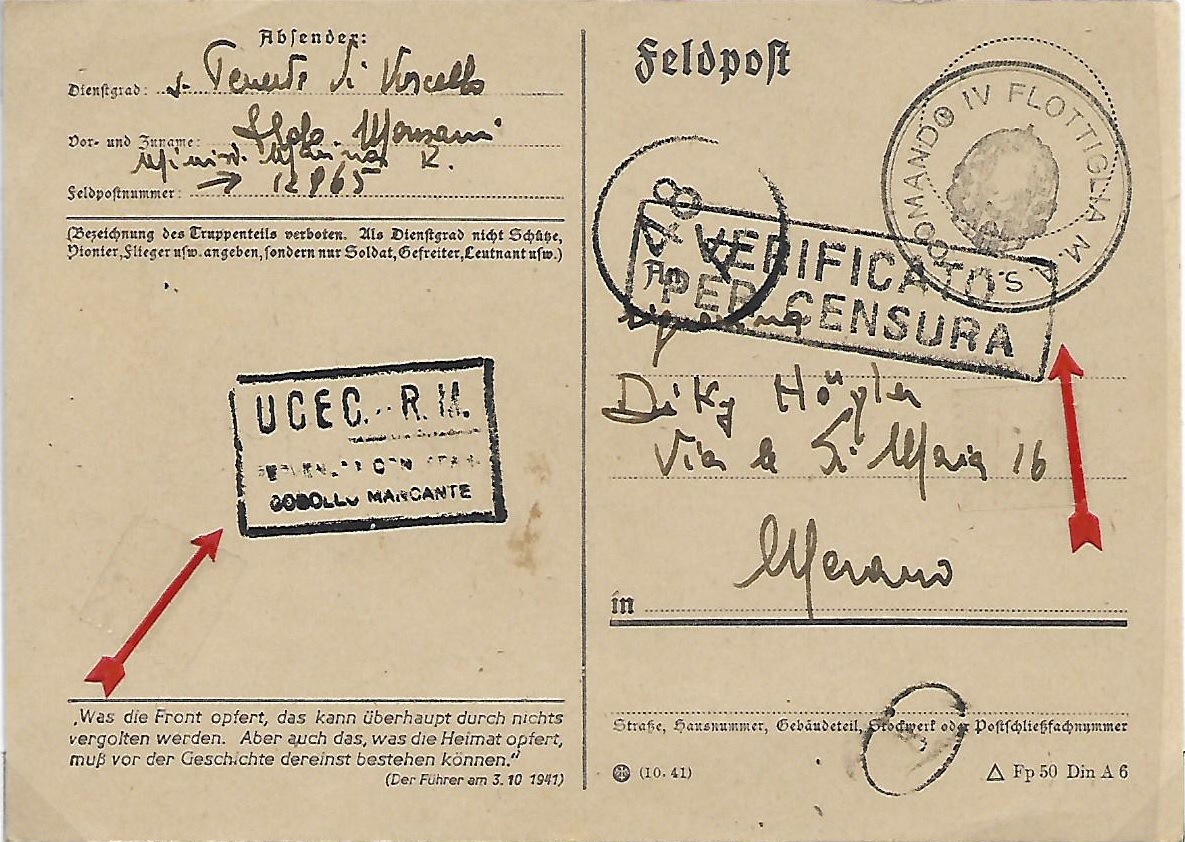 Absender:
Dienstgrad: S. Tenente di Vascello
Vor- und Zuname:
Minist. Marina R.
Feldpostnummer: → 12865
(Bezeichnung des Truppenteils verboten. Als Dienstgrad nicht Schütze,
Pionier, Flieger usw. angeben, sondern nur Soldat, Gefreiter, Leutnant usw.)
U.C.E.C. - R.M.
BOBOLLO MARCANTE
„Was die Front opfert, das kann überhaupt durch nichts
vergolten werden. Aber auch das, was die Heimat opfert,
muß vor der Geschichte dereinst bestehen können.“
(Der Führer am 3. 10 1941)
Feldpost
COMANDO IV FLOTTIGLIA M.A.S.
VERIFICATO
PER CENSURA
An
Via
16
Merano
in
Straße, Hausnummer, Gebäudeteil, Stockwerk oder Postschließfachnummer
(10. 41)
Fp 50 Din A 6